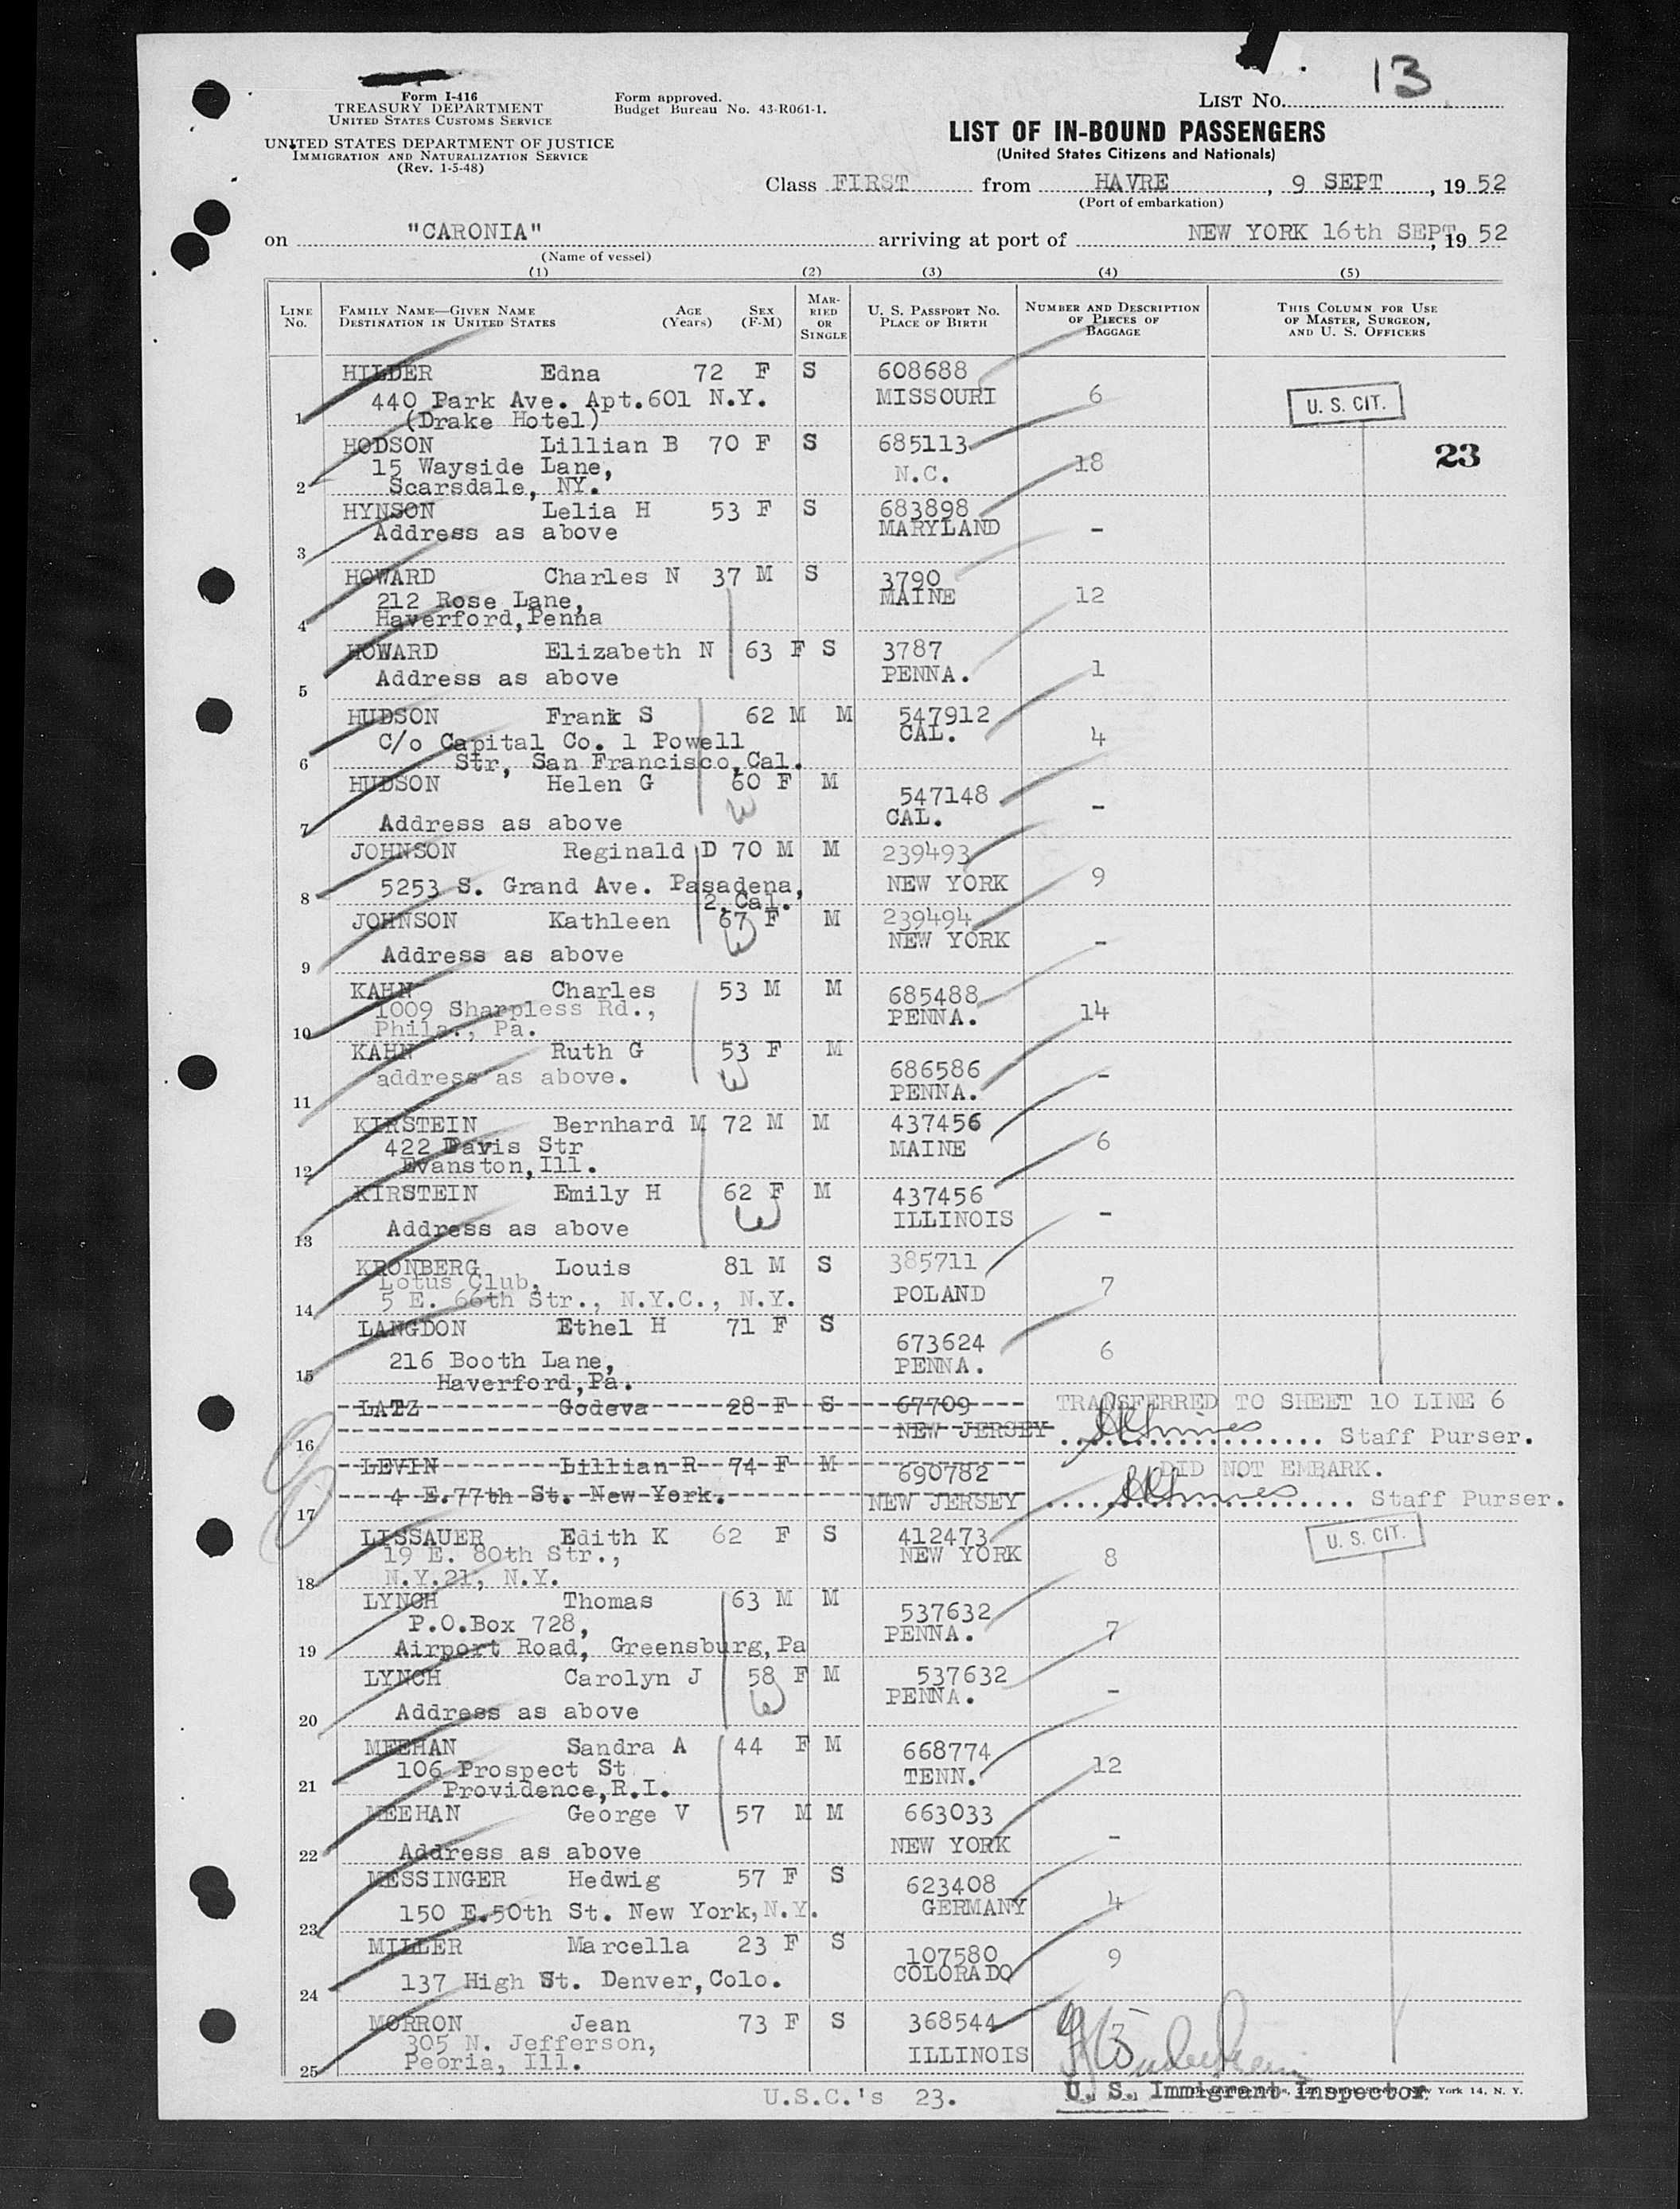 13
Form I-416
TREASURY DEPARTMENT
UNITED STATES CUSTOMS SERVICE
UNITED STATES DEPARTMENT OF JUSTICE
IMMIGRATION AND NATURALIZATION SERVICE
(Rev. 1-5-48)
Form approved.
Budget Bureau No. 43-R061-1.
LIST NO.
LIST OF IN-BOUND PASSENGERS
(United States Citizens and Nationals)
Class FIRST from HAVRE, 9 SEPT, 1952
(Port of embarkation)
on "CARONIA" arriving at port of NEW YORK 16th SEPT, 1952
(Name of vessel)
(1) (2) (3) (4) (5)
LINE No. FAMILY NAME—GIVEN NAME DESTINATION IN UNITED STATES AGE (Years) SEX (F-M) MARRIED OR SINGLE U. S. PASSPORT NO. PLACE OF BIRTH NUMBER AND DESCRIPTION OF PIECES OF BAGGAGE THIS COLUMN FOR USE OF MASTER, SURGEON, AND U. S. OFFICERS
HILDER Edna 72 F S 608688
440 Park Ave. Apt.601 N.Y. MISSOURI 6 U. S. CIT.
1 (Drake Hotel)
HODSON Lillian B 70 F S 685113 23
15 Wayside Lane, N.C. 18
2 Scarsdale, NY.
HYNSON Lelia H 53 F S 683898
Address as above MARYLAND -
3
HOWARD Charles N 37 M S 3790
212 Rose Lane, MAINE 12
4 Haverford, Penna
HOWARD Elizabeth N 63 F S 3787
Address as above PENNA. 1
5
HUDSON Frank S 62 M M 547912
C/o Capital Co. 1 Powell CAL. 4
6 Str, San Francisco, Cal.
HUDSON Helen G 60 F M 547148 -
7 Address as above CAL.
JOHNSON Reginald D 70 M M 239493
5253 S. Grand Ave. Pasadena, NEW YORK 9
8 2, Cal.
JOHNSON Kathleen 67 F M 239494
NEW YORK -
9 Address as above
KAHN Charles 53 M M 685488
1009 Sharpless Rd., PENNA. 14
10 Phila., Pa.
KAHN Ruth G 53 F M 686586
address as above. PENNA. -
11
KIRSTEIN Bernhard M 72 M M 437456
422 Davis Str MAINE 6
12 Evanston, Ill.
KIRSTEIN Emily H 62 F M 437456
Address as above ILLINOIS -
13
KRONBERG Louis 81 M S 385711
Lotus Club, POLAND 7
14 5 E. 66th Str., N.Y.C., N.Y.
LANGDON Ethel H 71 F S 673624
216 Booth Lane, PENNA. 6
15 Haverford, Pa.
LATZ Godeva 28 F S 67709 TRANSFERRED TO SHEET 10 LINE 6
16 NEW JERSEY Staff Purser.
LEVIN Lillian R 74 F M 690782 DID NOT EMBARK.
17 4 E. 77th St. New York. NEW JERSEY Staff Purser.
LISSAUER Edith K 62 F S 412473 U. S. CIT.
19 E. 80th Str., NEW YORK 8
18 N.Y.21, N.Y.
LYNCH Thomas 63 M M 537632
P.O.Box 728, PENNA. 7
19 Airport Road, Greensburg, Pa
LYNCH Carolyn J 58 F M 537632
PENNA. -
20 Address as above
MEEHAN Sandra A 44 F M 668774
106 Prospect St TENN. 12
21 Providence, R.I.
MEEHAN George V 57 M M 663033
22 Address as above NEW YORK -
MESSINGER Hedwig 57 F S 623408
150 E.50th St. New York, N.Y. GERMANY 4
23
MILLER Marcella 23 F S 107580
137 High St. Denver, Colo. COLORADO 9
24
MORRON Jean 73 F S 368544 3
305 N. Jefferson, ILLINOIS
25 Peoria, Ill.
U.S.C.'s 23. U. S. Immigrant Inspector
York 14, N. Y.